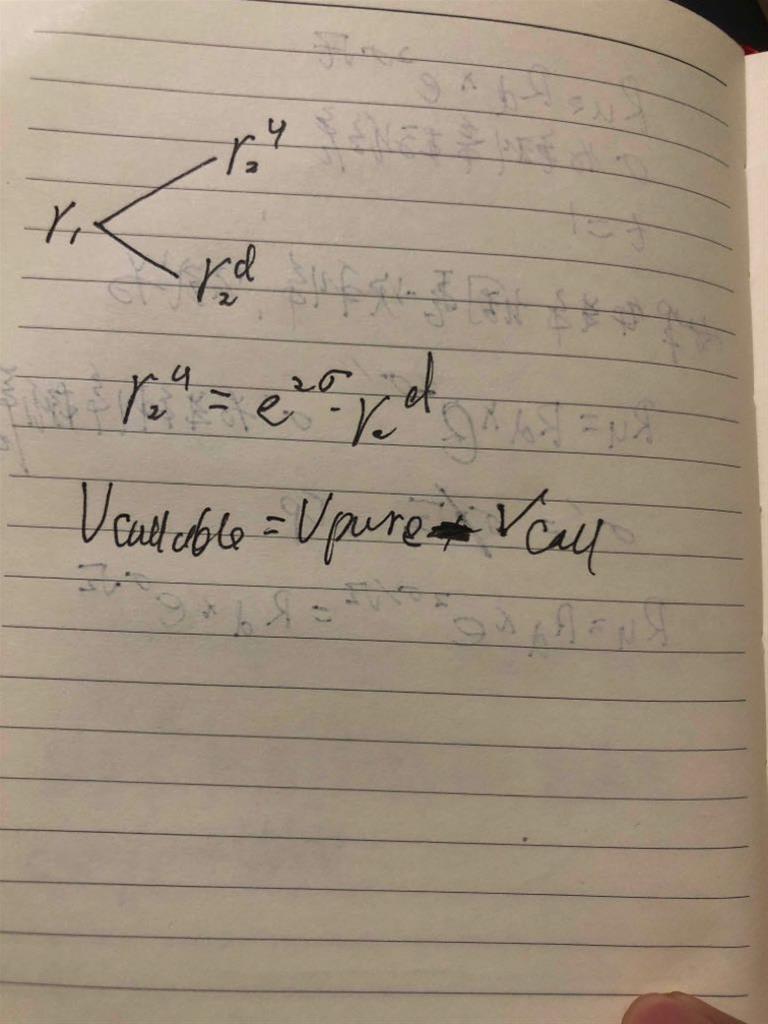 r₂ᵘ
r₁
r₂ᵈ
r₂ᵘ = e²ᶢ · r₂ᵈ
Vcallable = Vpure - Vcall